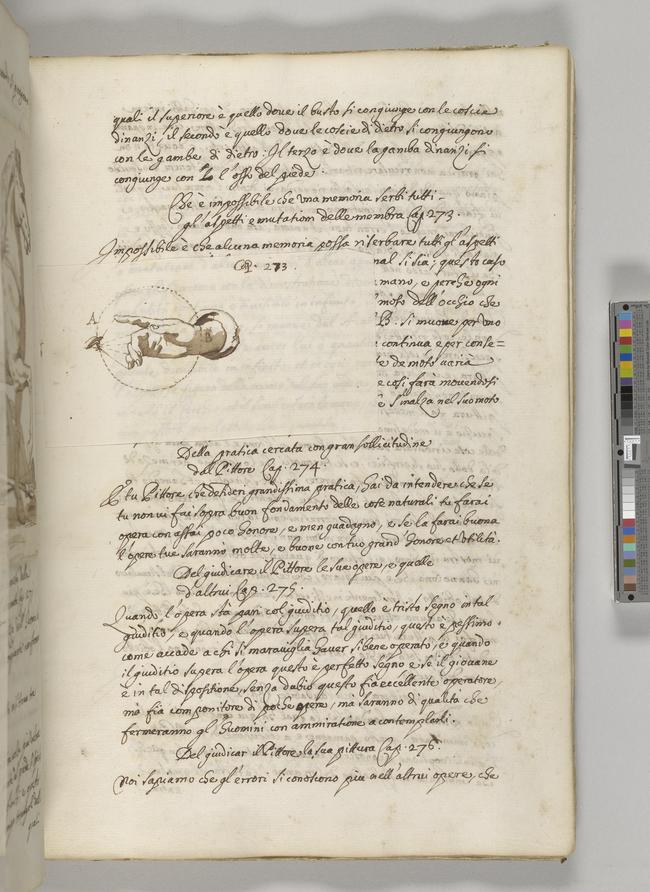 quali il superiore è quello dove il busto si congiunge con le coscie
dinanzi, il secondo è quello dove le coscie di dietro si congiungono
con le gambe di dietro: Il terzo è dove la gamba dinanzi si
congiunge con l'osso del piede.
Che è impossibile che una memoria serbi tutti
gl'aspetti e mutationi delle membra Cap. 273.
Impossibile è che alcuna memoria possa riserbare tutti gl'aspetti
Cap. 273.
nal si sia; questo caso
mano, e perche ogni
moto dell'occhio che
A
B
B. si muove per uno
continua e per conse=
e de moto varia
e cosi farà movendosi
s'inalza nel suo moto
Della pratica cercata con gran sollicitudine
dal Pittore Cap. 274.
E tu Pittore che desideri grandissima pratica, hai da intendere che se
tu non vi fai sopra buon fondamento delle cose naturali tu farai
opera con assai poco honore, e men guadagno, e se la farai buona
l'opere tue saranno molte, e buone con tuo grand'honore et utilità.
Del giudicare il Pittore le sue opere, e quelle
d'altrui Cap. 275.
Quando l'opera stà pari col giuditio, quello è tristo segno in tal
giuditio, e quando l'opera supera tal giuditio, questo è pessimo,
come accade a chi si maraviglia haver si bene operato, e quando
il giuditio supera l'opera questo è perfetto segno e se il giovane
è in tal dispositione, senza dubio questo fia eccellente operatore,
mà fia componitore di poche opere, mà saranno di qualità che
fermeranno gl'huomini con ammiratione a contemplarli.
Del giudicar il Pittore la sua pittura Cap. 276.
Noi sapiamo che gl'errori si conoscono più nell'altrui opere, che